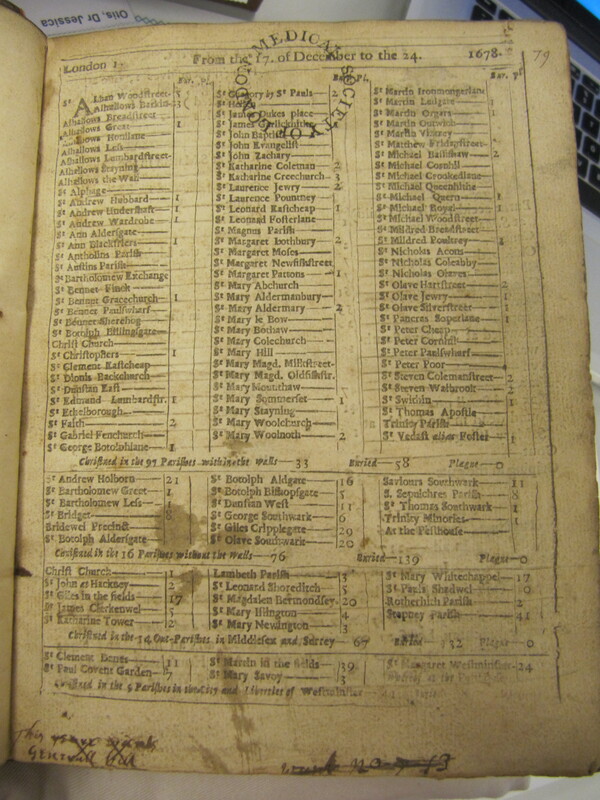 Otis, Dr Jessica
MEDICAL SOCIETY OF
London 1. From the 17. of December to the 24. 1678. 79
Bur. Pl. Bur. Pl. Bur. Pl
St Alban Woodstreet St Gregory by St Pauls 2 St Martin Ironmongerlane
Alhallows Barkin St Hellen St Martin Ludgate 1
Alhallows Breadstreet St James Dukes place St Martin Orgars 1
Alhallows Great 1 St James Garlickhithe St Martin Outwich
Alhallows Honilane St John Baptist St Martin Vintrey
Alhallows Less St John Evangelist St Matthew Fridaystreet
Alhallows Lumbardstreet St John Zachary St Michael Bassishaw 2
Alhallows Stayning St Katharine Coleman 2 St Michael Cornhil
Alhallows the Wall St Katharine Creechurch 3 St Michael Crookedlane
St Alphage St Laurence Jewry 2 St Michael Queenhithe
St Andrew Hubbard 1 St Laurence Pountney St Michael Quern 1
St Andrew Undershaft 1 St Leonard Eastcheap 1 St Michael Royal 1
St Andrew Wardrobe 1 St Leonard Fosterlane St Michael Woodstreet
St Ann Aldersgate St Magnus Parish St Mildred Breadstreet
St Ann Blackfriers 1 St Margaret Lothbury 2 St Mildred Poultrey 1
St Antholins Parish St Margaret Moses St Nicholas Acons
St Austins Parish St Margaret Newfishstreet St Nicholas Coleabby
St Bartholomew Exchange St Margaret Pattons 1 St Nicholas Olaves
St Bennet Finck St Mary Abchurch St Olave Hartstreet 2
St Bennet Gracechurch 1 St Mary Aldermanbury St Olave Jewry 1
St Bennet Paulswharf St Mary Aldermary 2 St Olave Silverstreet 1
St Bennet Sherehog St Mary le Bow St Pancras Soperlane
St Botolph Billingsgate St Mary Bothaw St Peter Cheap
Christ Church St Mary Colechurch St Peter Cornhil
St Christophers 1 St Mary Hill St Peter Paulswharf
St Clement Eastcheap St Mary Magd. Milkstreet St Peter Poor
St Dionis Backchurch St Mary Magd. Oldfishstr. St Steven Colemanstreet 2
St Dunstan East St Mary Mounthaw St Steven Walbrook 2
St Edmund Lumbardstr. 1 St Mary Summerset 1 St Swithin 1
St Ethelborough St Mary Stayning St Thomas Apostle
St Faith 2 St Mary Woolchurch Trinity Parish
St Gabriel Fenchurch St Mary Woolnoth 2 St Vedast alias Foster 1
St George Botolphlane 1
Christned in the 97 Parishes within the Walls 33 Buried 58 Plague 0
St Andrew Holborn 21 St Botolph Aldgate 16 Saviours Southwark 11
St Bartholomew Great 1 St Botolph Bishopsgate 5 S. Sepulchres Parish 8
St Bartholomew Less 1 St Dunstan West 11 St Thomas Southwark 1
St Bridget St George Southwark 6 Trinity Minories 1
Bridewel Precinct St Giles Cripplegate 29 At the Pesthouse
St Botolph Aldersgate St Olave Southwark 20
Christned in the 16 Parishes without the Walls 76 Buried 139 Plague 0
Christ Church 1 Lambeth Parish 3 St Mary Whitechappel 17
St John at Hackney 2 St Leonard Shoreditch 5 St Pauls Shadwel 0
St Giles in the fields 17 St Magdalen Bermondsey 20 Rotherhith Parish 2
St James Clerkenwel 5 St Mary Islington 4 Stepney Parish 41
St Katharine Tower 2 St Mary Newington 3
Christned in the 14 Out-Parishes in Middlesex and Surrey 67 Buried 132 Plague 0
St Clement Danes 11 St Martin in the fields 39 St Margaret Westminster 24
St Paul Covent Garden 7 St Mary Savoy 3
Christned in the 5 Parishes in the City and Liberties of Westminster
this
Generall bill